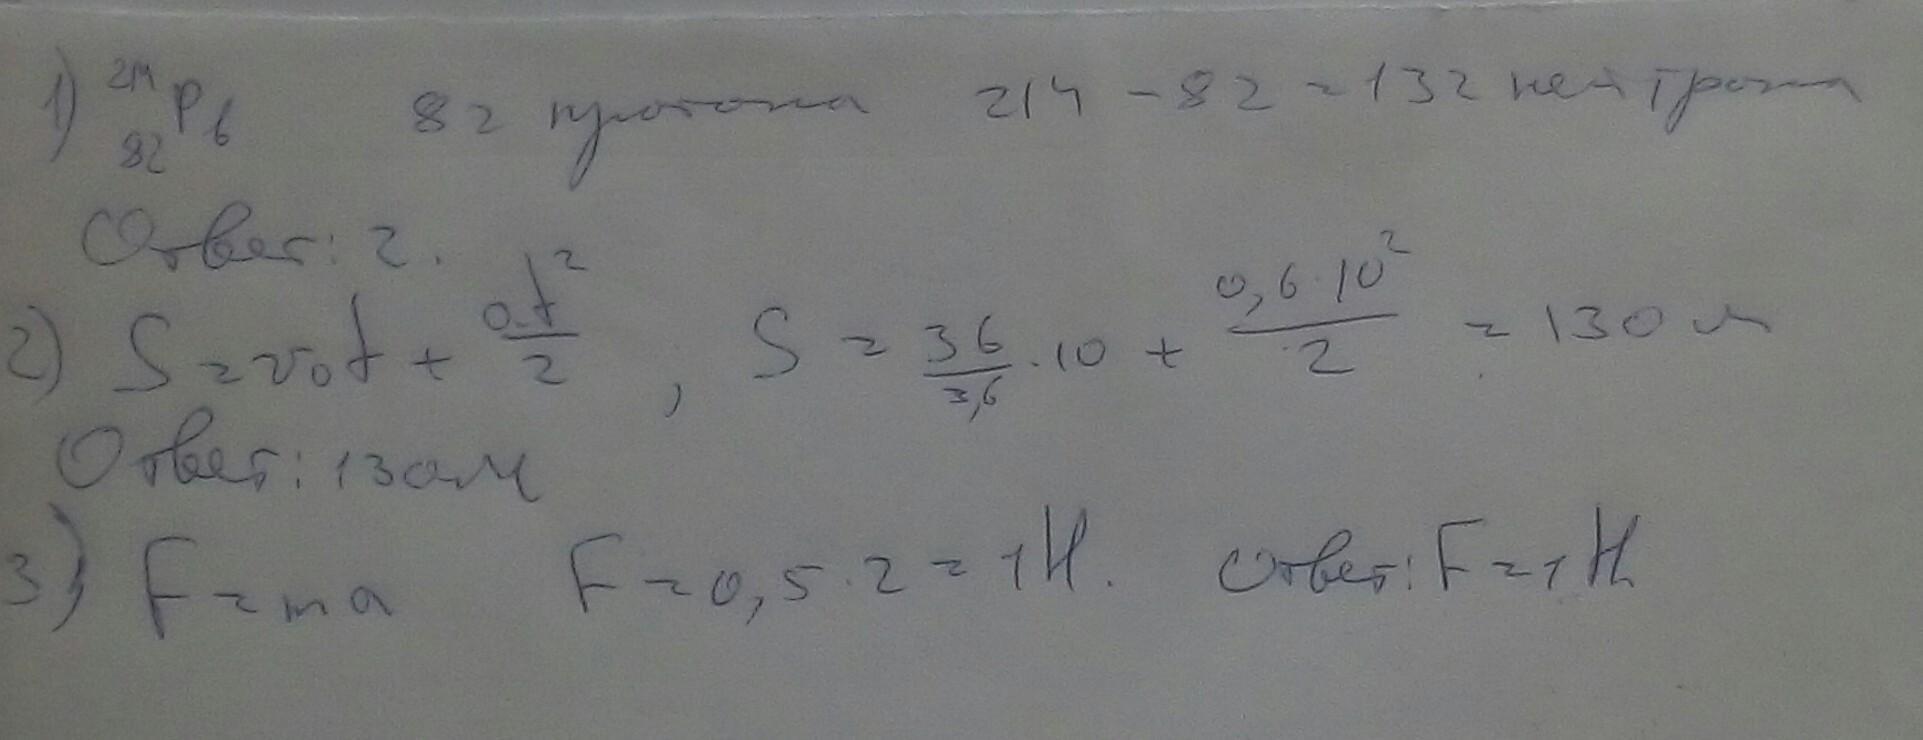 1) ²¹⁴₈₂Pb 82 протона 214 - 82 = 132 нейтрона
Ответ: 2.
2) S = v₀t + at²/2, S = 36/3,6 · 10 + 0,6·10²/2 = 130 м
Ответ: 130 м
3) F = ma F = 0,5 · 2 = 1 Н. Ответ: F = 1 Н